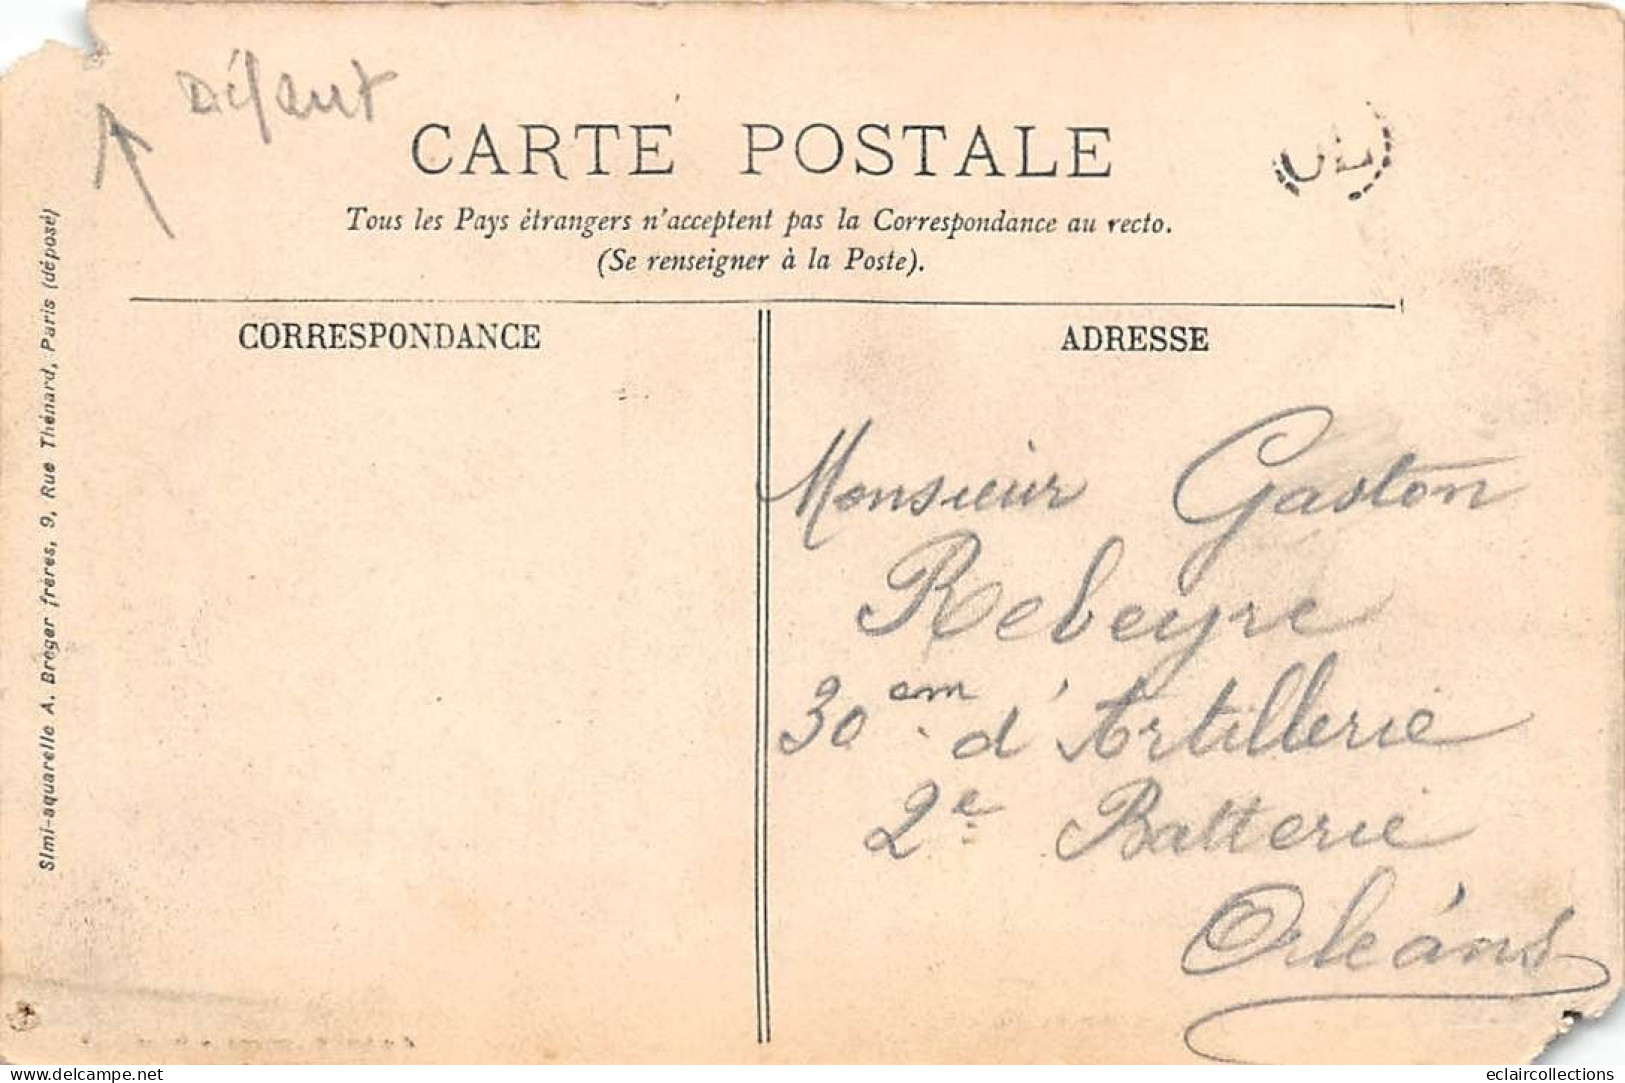 Défaut
CARTE POSTALE
OL
Tous les Pays étrangers n'acceptent pas la Correspondance au recto.
(Se renseigner à la Poste).
CORRESPONDANCE
ADRESSE
Simi-aquarelle A. Breger frères, 9, Rue Thénard, Paris (déposé)
Monsieur Gaston
Rebeyre
30em d'Artillerie
2e Batterie
Orléans
www.delcampe.net
eclaircollections